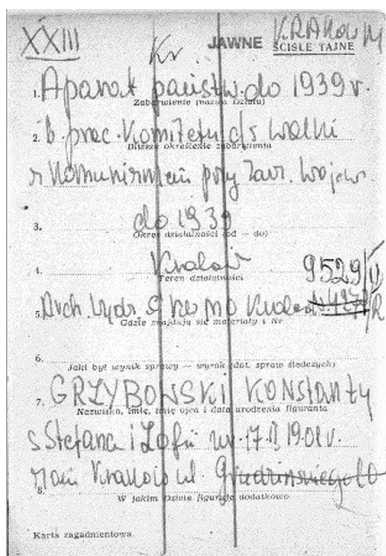 XXIII Kr JAWNE KRAKÓW
ŚCIŚLE TAJNE
1. Aparat państw. do 1939 r.
Zabarwienie (nazwa Działu)
2. b. prac. Komitetu d/s walki
Bliższe określenie zabarwienia
z Komunizmem przy Zarz. Wojew.
3. do 1939
Okres działalności (od — do)
4. Kraków 9529/II
Teren działalności
5. Arch. Wydz. "C" KW MO Kraków
Gdzie znajdują się materiały i Nr
6.
Jaki był wynik sprawy — wyrok (dot. spraw śledczych)
7. GRZYBOWSKI KONSTANTY
Nazwisko, imię, imię ojca i data urodzenia figuranta
s Stefana i Zofii ur. 17.II 1901 r.
zam Kraków ul.
8.
W jakim Dziale figuruje dodatkowo
Karta zagadnieniowa